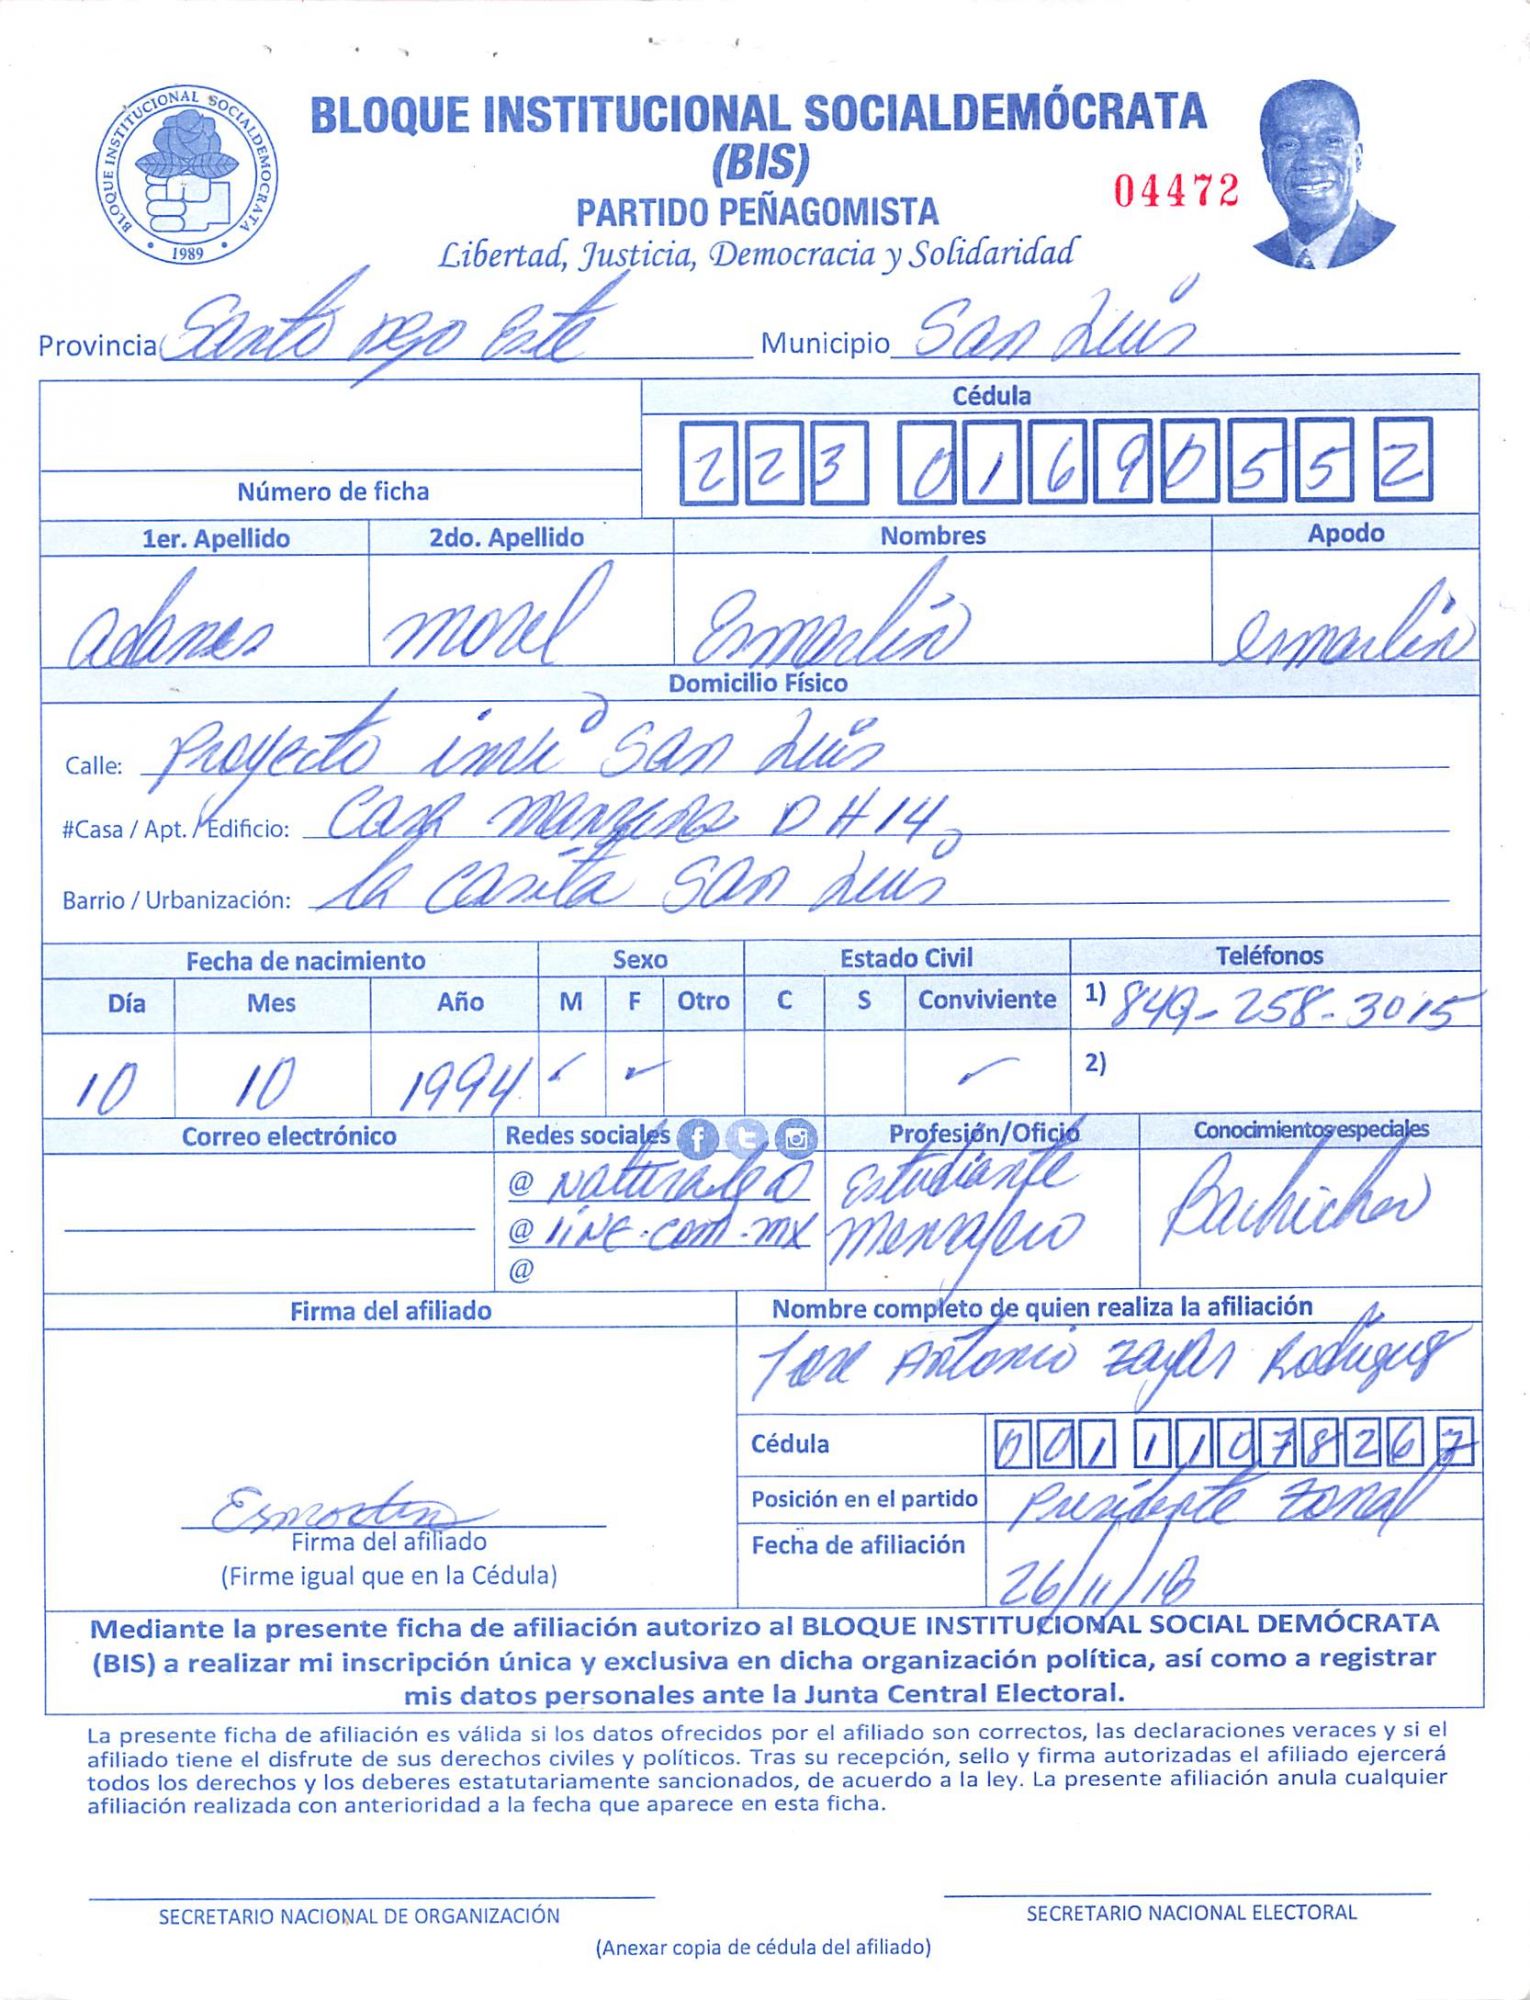 BLOQUE INSTITUCIONAL SOCIALDEMOCRATA
1989
BLOQUE INSTITUCIONAL SOCIALDEMÓCRATA
(BIS)
04472
PARTIDO PEÑAGOMISTA
Libertad, Justicia, Democracia y Solidaridad
Provincia Santo Dgo Este Municipio San Luis
Cédula
223 0169055 2
Número de ficha
1er. Apellido 2do. Apellido Nombres Apodo
Adames Morel Esmarlin esmarlin
Domicilio Físico
Calle: Proyecto invi San Luis
#Casa / Apt. / Edificio: Casa manzana D #14
Barrio / Urbanización: la Casita San Luis
Fecha de nacimiento Sexo Estado Civil Teléfonos
Día Mes Año M F Otro C S Conviviente 1) 849-258-3015
10 10 1994 2)
Correo electrónico Redes sociales Profesión/Oficio Conocimientos especiales
@ Estudiante Bachicher
@ LINE.com.mx
@
Firma del afiliado Nombre completo de quien realiza la afiliación
Jose Antonio Zayas Rodriguez
Cédula 001 1107826 7
Posición en el partido Presidente Zonal
Firma del afiliado
Fecha de afiliación 26/11/18
(Firme igual que en la Cédula)
Mediante la presente ficha de afiliación autorizo al BLOQUE INSTITUCIONAL SOCIAL DEMÓCRATA
(BIS) a realizar mi inscripción única y exclusiva en dicha organización política, así como a registrar
mis datos personales ante la Junta Central Electoral.
La presente ficha de afiliación es válida si los datos ofrecidos por el afiliado son correctos, las declaraciones veraces y si el
afiliado tiene el disfrute de sus derechos civiles y políticos. Tras su recepción, sello y firma autorizadas el afiliado ejercerá
todos los derechos y los deberes estatutariamente sancionados, de acuerdo a la ley. La presente afiliación anula cualquier
afiliación realizada con anterioridad a la fecha que aparece en esta ficha.
SECRETARIO NACIONAL DE ORGANIZACIÓN SECRETARIO NACIONAL ELECTORAL
(Anexar copia de cédula del afiliado)